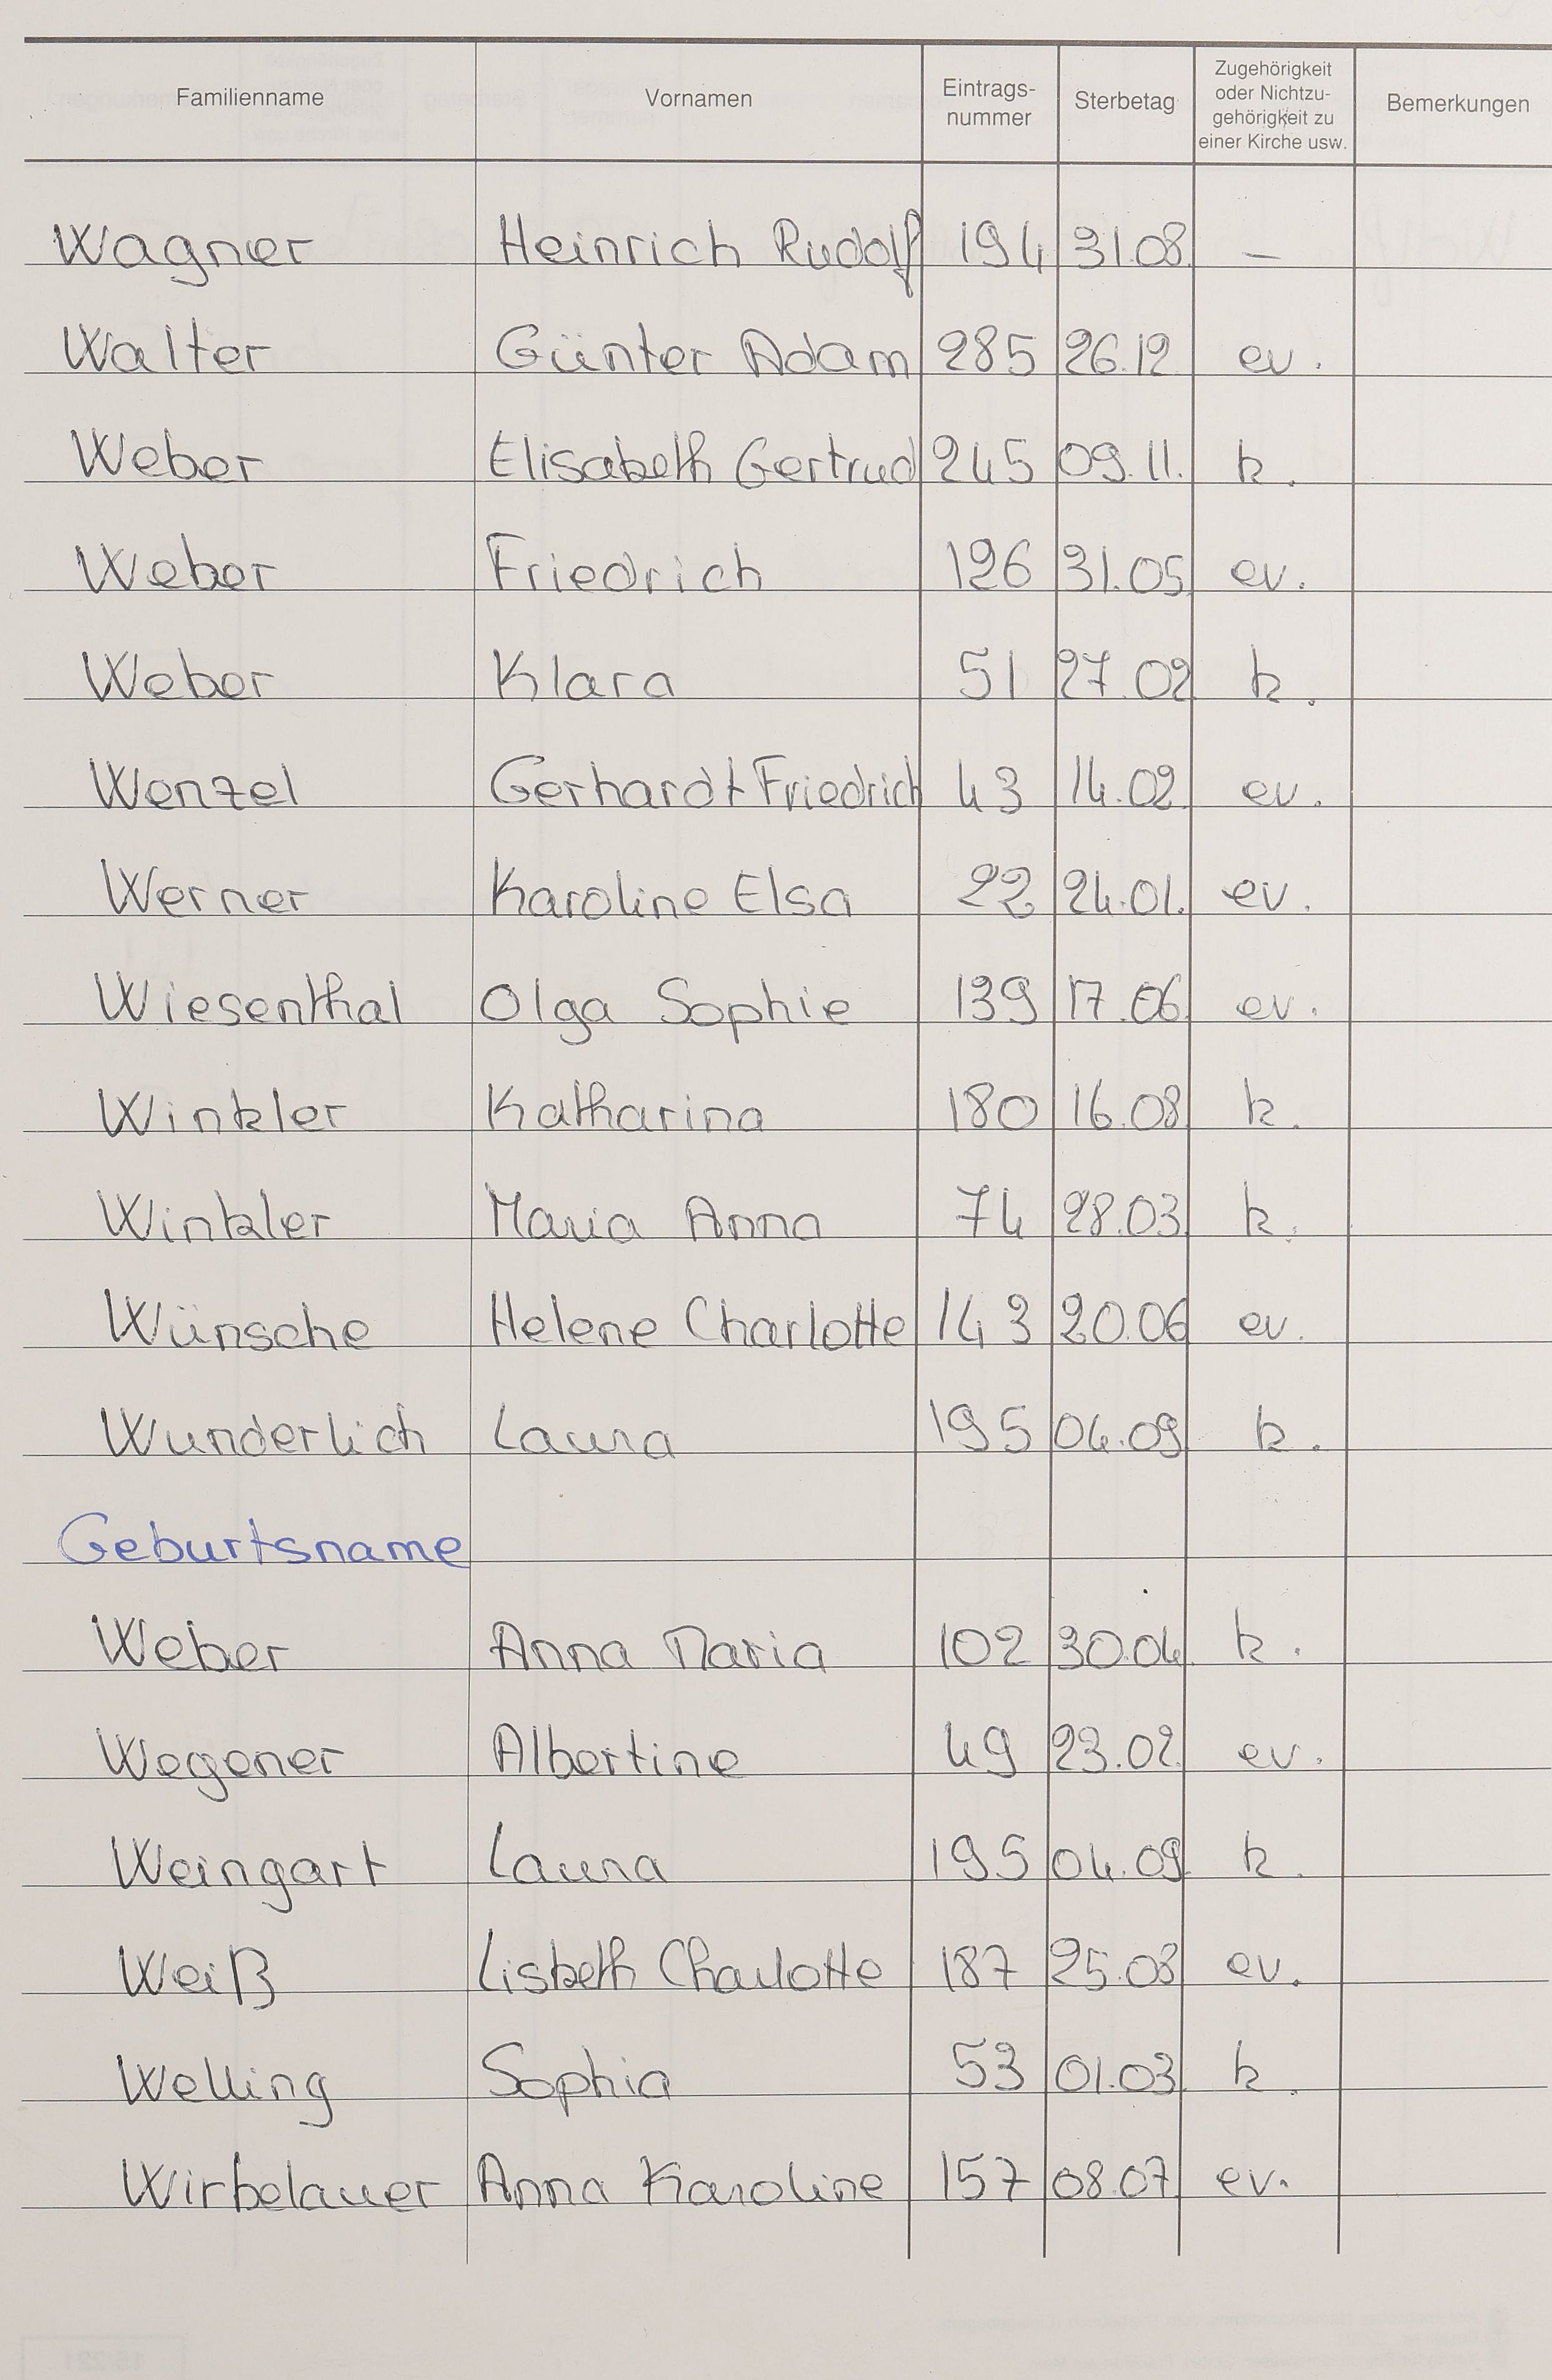 Familienname Vornamen Eintrags-nummer Sterbetag Zugehörigkeit oder Nichtzu-gehörigkeit zu einer Kirche usw. Bemerkungen
Wagner Heinrich Rudolf 194 31.08. –
Walter Günter Adam 285 26.12 ev.
Weber Elisabeth Gertrud 245 09.11. k.
Weber Friedrich 126 31.05. ev.
Weber Klara 51 27.02 k.
Wenzel Gerhardt Friedrich 43 14.02. ev.
Werner Karoline Elsa 22 24.01. ev.
Wiesenthal Olga Sophie 139 17.06. ev.
Winkler Katharina 180 16.08. k.
Winkler Maria Anna 74 28.03. k.
Wünsche Helene Charlotte 143 20.06 ev.
Wunderlich Laura 195 04.09. k.
Geburtsname
Weber Anna Maria 102 30.04. k.
Wegener Albertine 49 23.02. ev.
Weingart Laura 195 04.09. k.
Weiß Lisbeth Charlotte 187 25.08 ev.
Welling Sophia 53 01.03. k.
Wirbelauer Anna Karoline 157 08.07. ev.